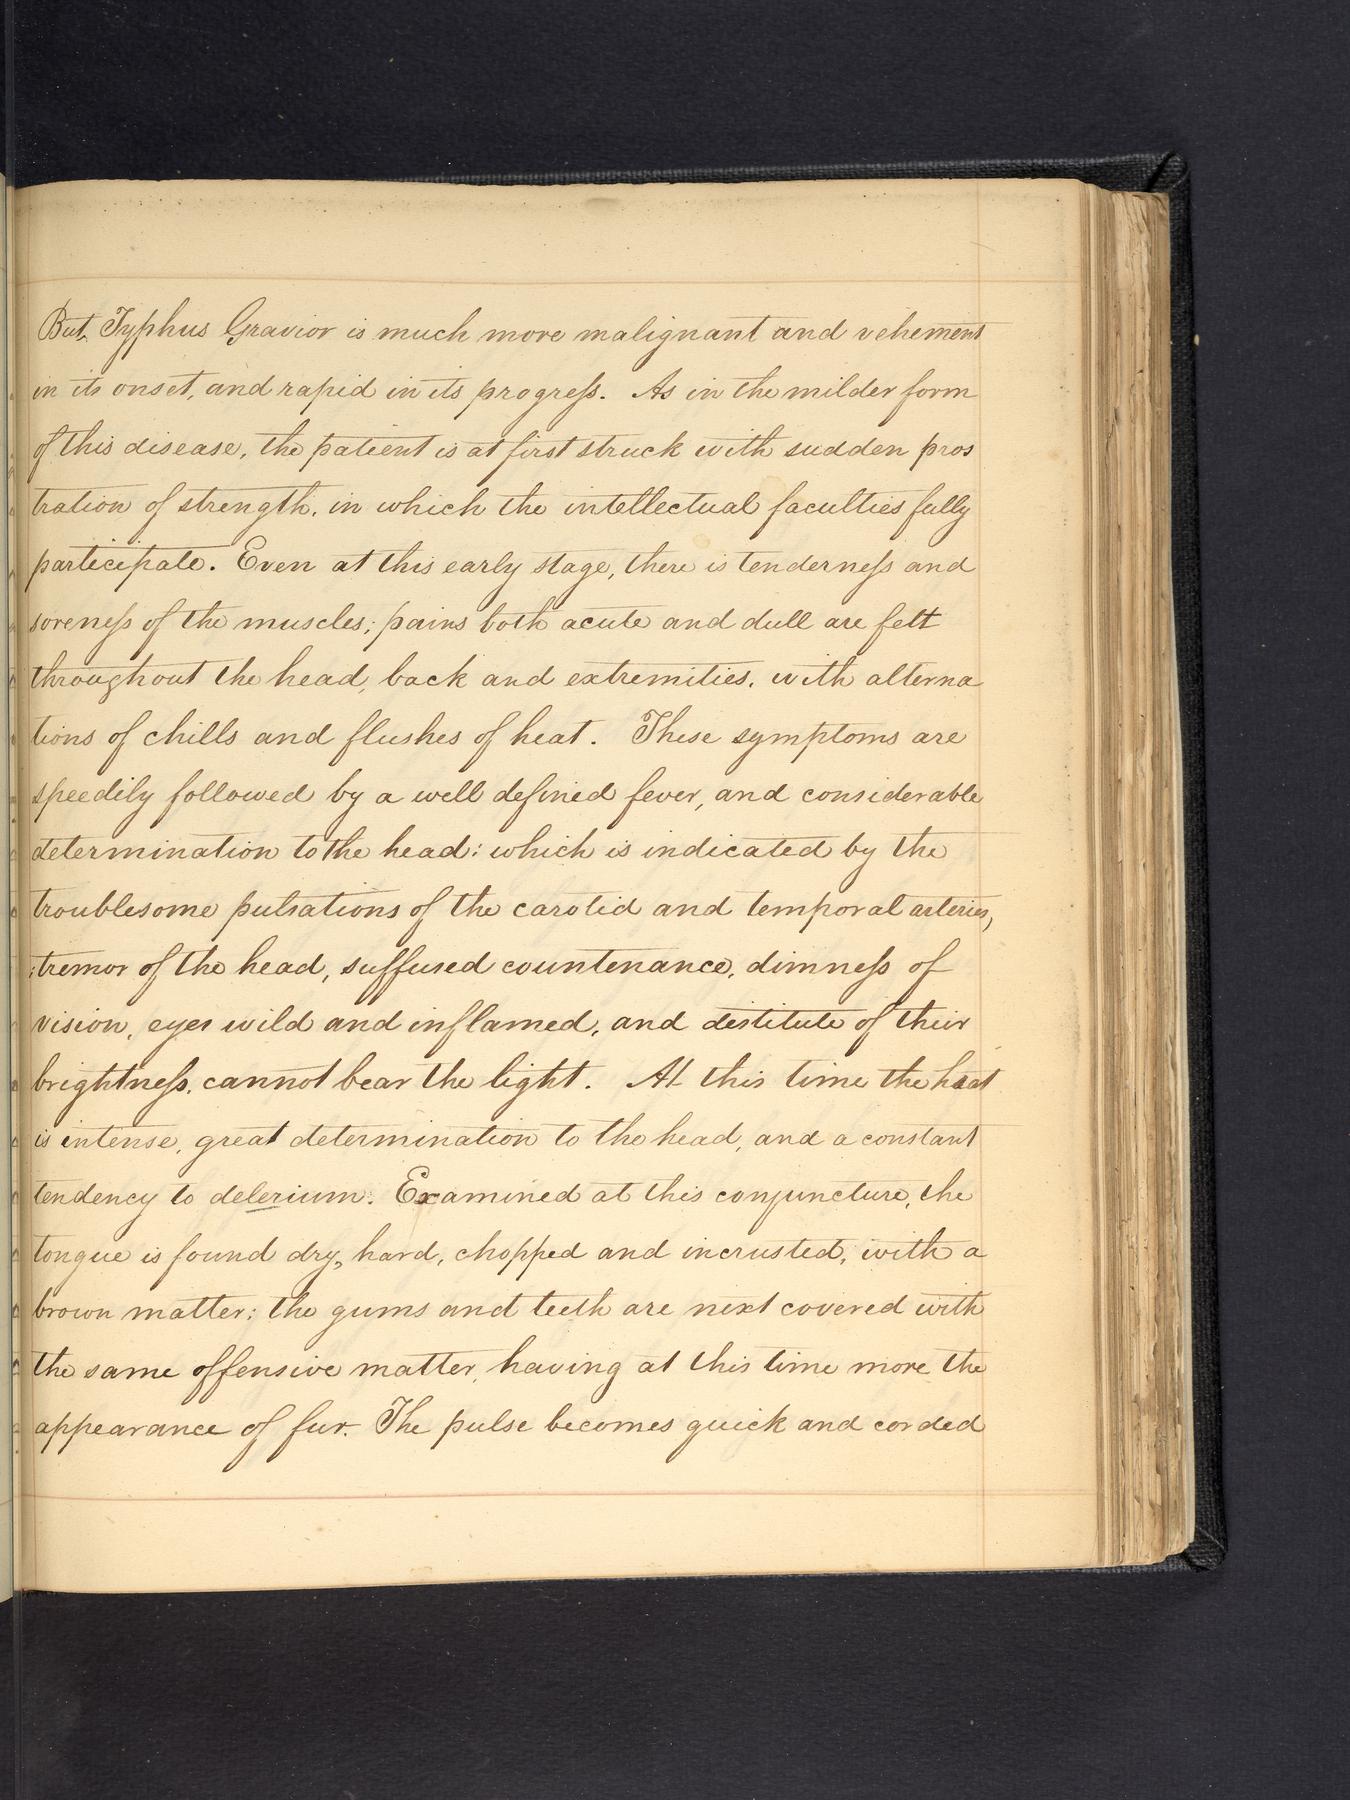 But, Typhus Gravior is much more malignant and vehement
in its onset, and rapid in its progreſs. As in the milder form
of this disease, the patient is at first struck with sudden pros
tration of strength, in which the intellectual faculties fully
participate. Even at this early stage, there is tenderneſs and
soreneſs of the muscles; pains both acute and dull are felt
throughout the head, back and extremities, with alterna
tions of chills and flushes of heat. These symptoms are
speedily followed by a well defined fever, and considerable
determination to the head: which is indicated by the
troublesome pulsations of the carotid and temporal arteries,
tremor of the head, suffused countenance, dimneſs of
vision, eyes wild and inflamed, and destitute of their
brightneſs, cannot bear the light. At this time the heat
is intense, great determination to the head, and a constant
tendency to delerium. Examined at this conjuncture, the
tongue is found dry, hard, chopped and incrusted, with a
brown matter; the gums and teeth are next covered with
the same offensive matter, having at this time more the
appearance of fur. The pulse becomes quick and corded